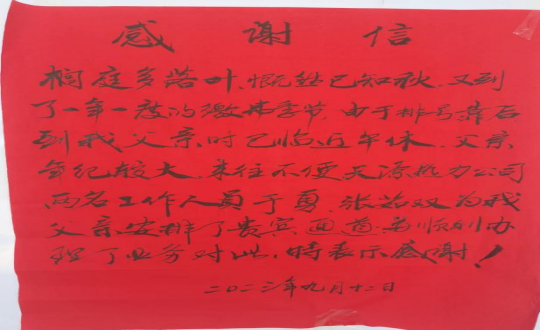 感谢信
桐庭多落叶,慨然已知秋,又到
了一年一度的缴费季节,由于排号靠后
到我父亲时已临近午休,父亲
年纪较大,来往不便天源热力公司
两名工作人员于勇,张茹双为我
父亲安排了贵宾通道并顺利办
理了业务对此,特表示感谢!
二〇二三年九月十二日